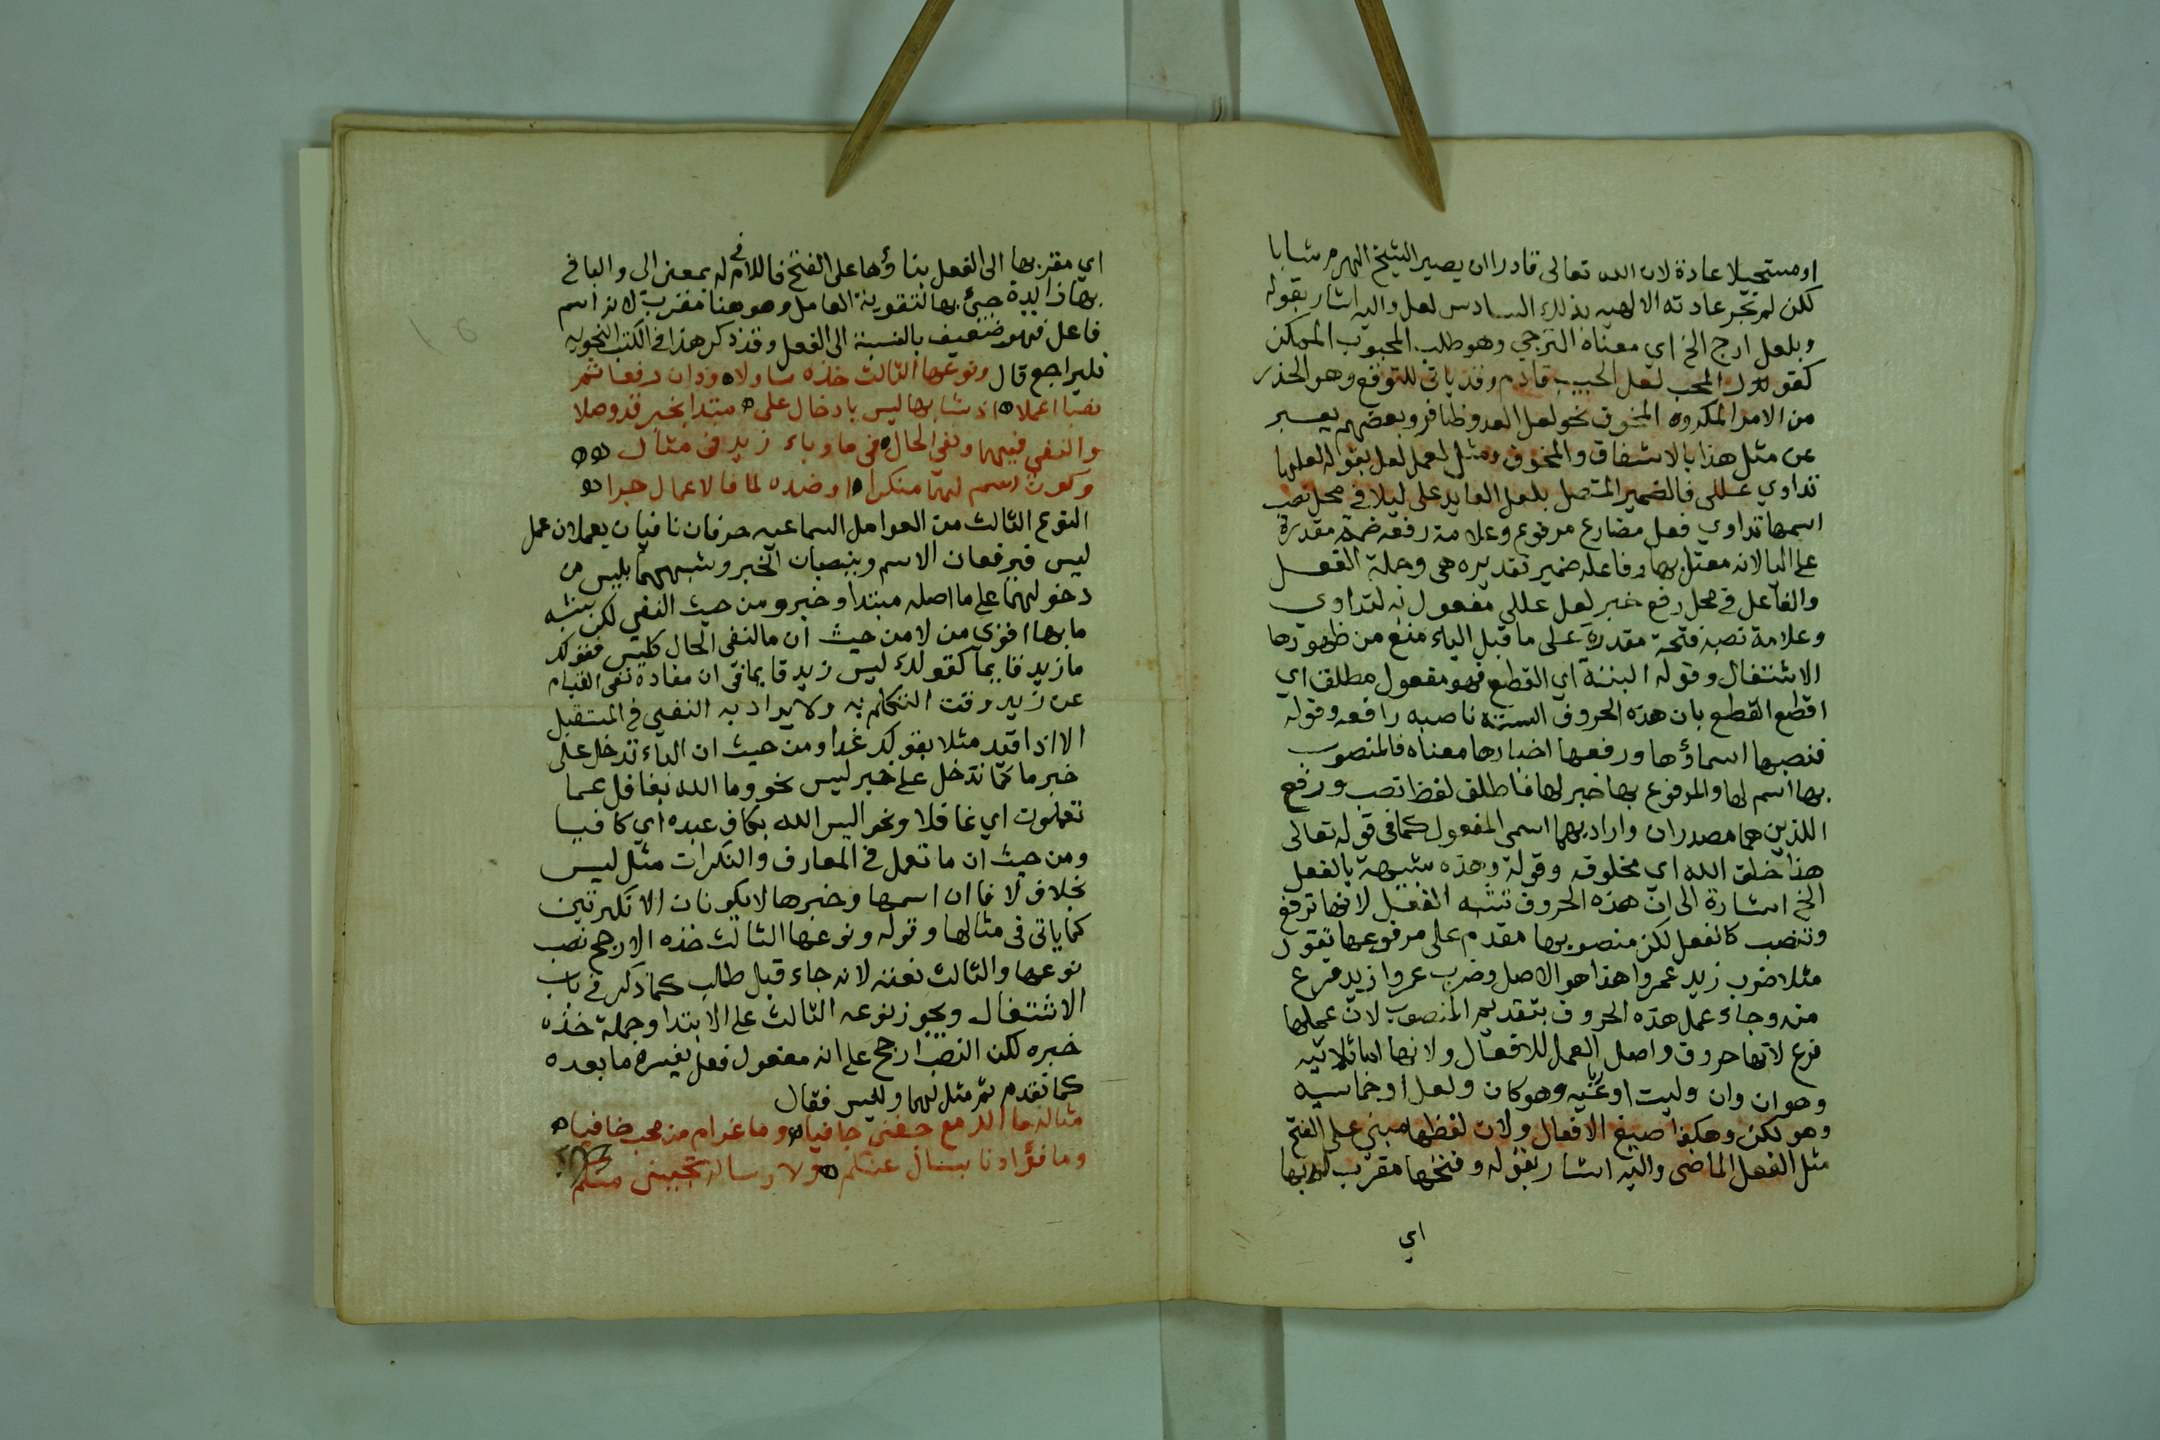 او مستحيلا عادة لان الله تعالى قادرا ان يصير الشيخ الهرم شابا
لكن لم تجر عادته الالهيه بذلك السادس لعل واليه اشار بقوله
وبلعل ارج الخ اي معناه الترجي وهو طلب المحبوب الممكن
كقول المحب لعل الحبيب قادم وقد ياتي للتوقع وهو الحذر
من الامر المكروه المخوف نحو لعل العدو ظافر وبعضهم يعبر
عن مثل هذا بالاشفاق والمخوف ومثل لعمل لعل بقوله لعلها
تداوي عللي فالضمير المتصل بلعل العايد على ليلا في محل نصب
اسمها تداوي فعل مضارع مرفوع وعلامة رفعه ضمة مقدرة
على اليا لانه معتل بها وفاعله ضمير تقديره هي وجملة الفعل
والفاعل في محل رفع خبر لعل عللي مفعول به لتداوي
وعلامة نصبه فتحة مقدرة على ما قبل الياء منع من ظهورها
الاشتغال وقوله البتة اي القطع فهو مفعول مطلق اي
اقطع القطع بان هذه الحروف الستة ناصبه رافعه وقوله
فنصبها اسماؤها ورفعها اخبارها معناه فالمنصوب
بها اسم لها والمرفوع بها خبر لها فاطلق لفظ نصب ورفع
اللذين هما مصدران واراد بهما اسمي المفعول كما في قوله تعالى
هذا خلق الله اي مخلوقه وقوله وهذه شبيهة بالفعل
الخ اشارة الى ان هذه الحروف تشبه الفعل لانها ترفع
وتنصب كالفعل لكن منصوبها مقدم على مرفوعها تقول
مثلا ضرب زيد عمروا هذا هو الاصل وضرب عمروا زيد فرع
منه وجاء عمل هذه الحروف بتقديم المنصوب لان عملها
فرع لانها حروف واصل العمل للافعال ولانها اما ثلاثيه
وهو ان وان وليت او رباعيه وهو كان ولعل او خماسيه
وهو لكن وهكذا صيغ الافعال ولان لفظها مبني على الفتح
مثل الفعل الماضي واليه اشار بقوله وفتحها مقرب له بها
اي
اي مقرب بها الى الفعل بناؤها على الفتح فاللام في له بمعنى الى والبا في
بها زايدة جئ بها لتقوية العامل وهو هنا مقرب لانه اسم
فاعل فهو ضعيف بالنسبة الى الفعل وقد ذكر هذا في الكتب النحويه
فليراجع قال ونوعها الثالث خذه ما ولا وذان رفعا ثم
نصبا اعملا اذ شابها ليس بادخال على مبتدا بخبر قد وصلا
والنفي فيهما ونفي الحال في ما وباء زيد في مثال
وكون اسم لهما منكرا او ضده لما فالاعمال جرا
النوع الثالث من العوامل السماعيه حرفان نافيان يعملان عمل
ليس فيرفعان الاسم وينصبان الخبر وشبههما بليس من
دخولهما على ما اصله مبتدا وخبر ومن حيث النفي لكن شبه
ما بها اقوى من لا من حيث ان ما لنفي الحال كليس فقولك
ما زيد قايما كقولك ليس زيد قايما في ان مفاده نفي القيام
عن زيد وقت التكلم به ولا يراد به النفي في المستقبل
الا اذا قيد مثلا بقولك غدا ومن حيث ان الباء تدخل على
خبر ما كما تدخل على خبر ليس نحو وما الله بغافل عما
تعملون اي غافلا ونحو اليس الله بكاف عبده اي كافيا
ومن حيث ان ما تعمل في المعارف والنكرات مثل ليس
بخلاف لا فان اسمها وخبرها لا يكونان الا نكرتين
كما ياتي في مثالها وقوله ونوعها الثالث خذه الارجح نصب
نوعها والثالث نعته لانه جاء قبل طالب كما ذكر في باب
الاشتغال ويجوز نوعه الثالث على الابتدا وجملة خذه
خبره لكن النصب ارجح على انه مفعول فعل يفسره ما بعده
كما تقدم ثم مثل لهما وليس فقال
مثاله ما الدمع جفني جافيا وما غرام من محب خافيا
وما فؤادنا بسال عنكم ولا رسالة تجيبني منكم